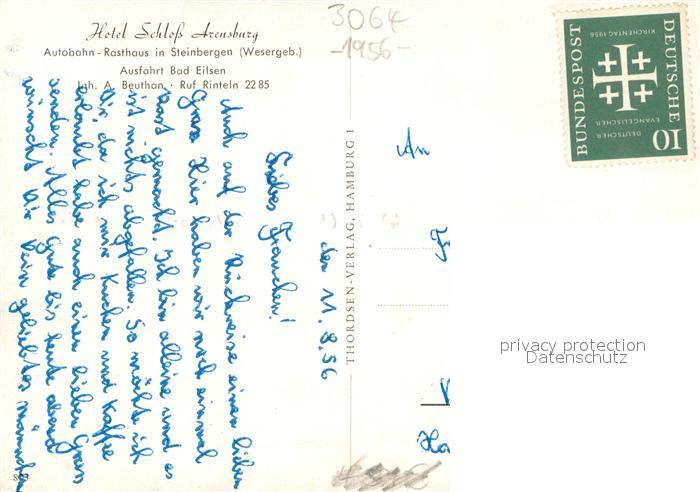 Hotel Schloß Arensburg
Autobahn-Rasthaus in Steinbergen (Wesergeb.)
Ausfahrt Bad Eilsen
Inh. A. Beuthan · Ruf Rinteln 22 85
3064
-1956-
den 11.8.56
Liebes Frauchen!
Auch auf der Rückreise einen lieben
Gruss Hier haben wir noch einmal
Rast gemacht. Ich bin alleine und es
ist nichts abgefallen. So möchte ich
Dir, da ich mir Kuchen und Kaffee
erlaubt habe auch einen lieben Gruss
senden. Alles Gute bis heute abend
wünscht Dir Dein geliebtes Männchen
THORDSEN-VERLAG, HAMBURG 1
An
Ho
DEUTSCHE
BUNDESPOST
KIRCHENTAG 1956
DEUTSCHER
EVANGELISCHER
10
privacy protection
Datenschutz